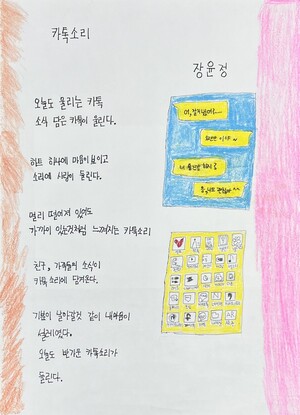 카톡소리
장윤정
오늘도 울리는 카톡
소식 담은 카톡이 울린다.
하트 하나에 마음이 보이고
소리에 사랑이 들린다.
멀리 떨어져 있어도
가까이 있는것처럼 느껴지는 카톡소리
친구, 가족들의 소식이
카톡소리에 담겨온다.
기분이 날아갈것 같이 내마음이
설레였다.
오늘도 반가운 카톡소리가
들린다.